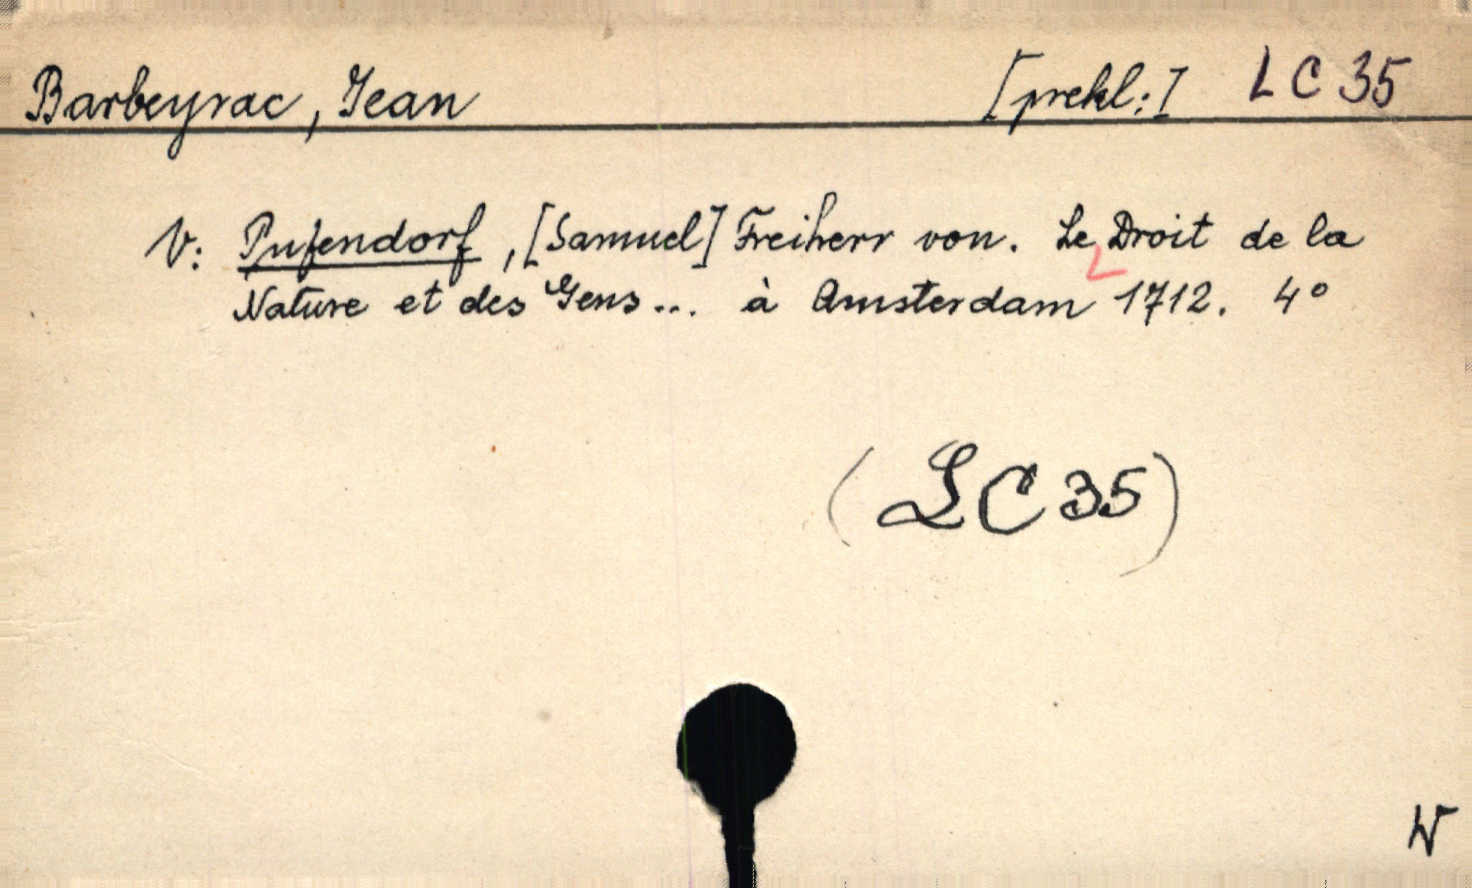 Barbeyrac, Jean [prekl:] LC 35
V: Pufendorf, [Samuel] Freiherr von. Le Droit de la
Nature et des Gens... à Amsterdam 1712. 4°
(LC 35)
W